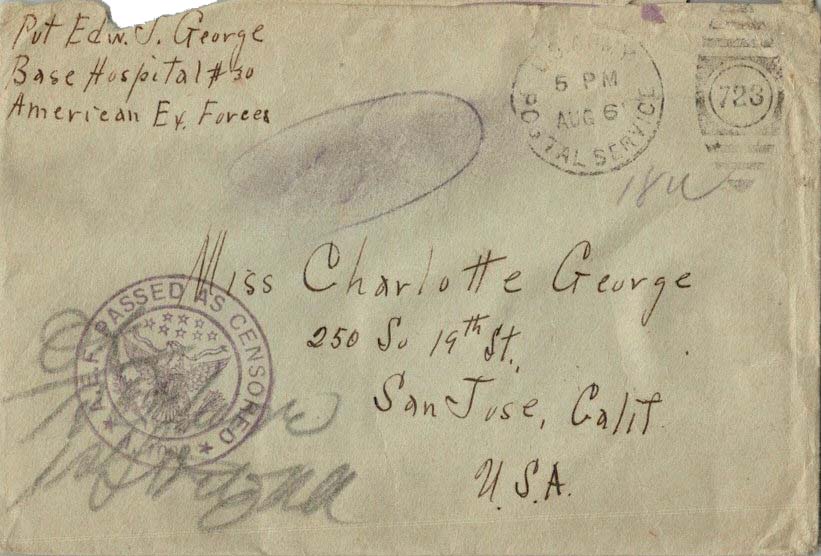 Pvt Edw. J. George
Base Hospital #30
American Ex. Forces
5 PM
AUG 6
POSTAL SERVICE
723
Miss Charlotte George
250 So 19th St.,
San Jose, Calif.
U.S.A.
A.E.F. PASSED AS CENSORED